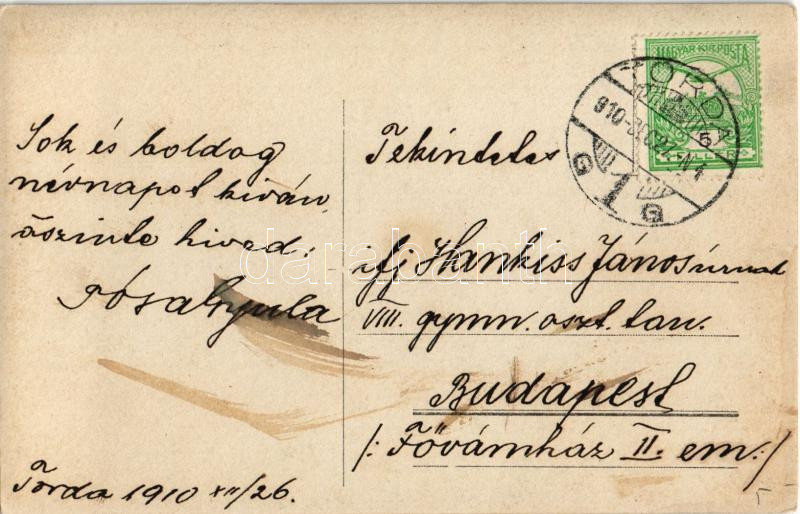 Sok és boldog
névnapot kiván
őszinte hived:
Pósa Gyula
Torda 1910 XII/26.
MAGYAR KIR. POSTA
TORDA
910
5
1
G G
Tekintetes
ifj Hankiss János úrnak
VIII. gymn. oszt. tan.
Budapest
/: Fővámház II. em:/
darabanth